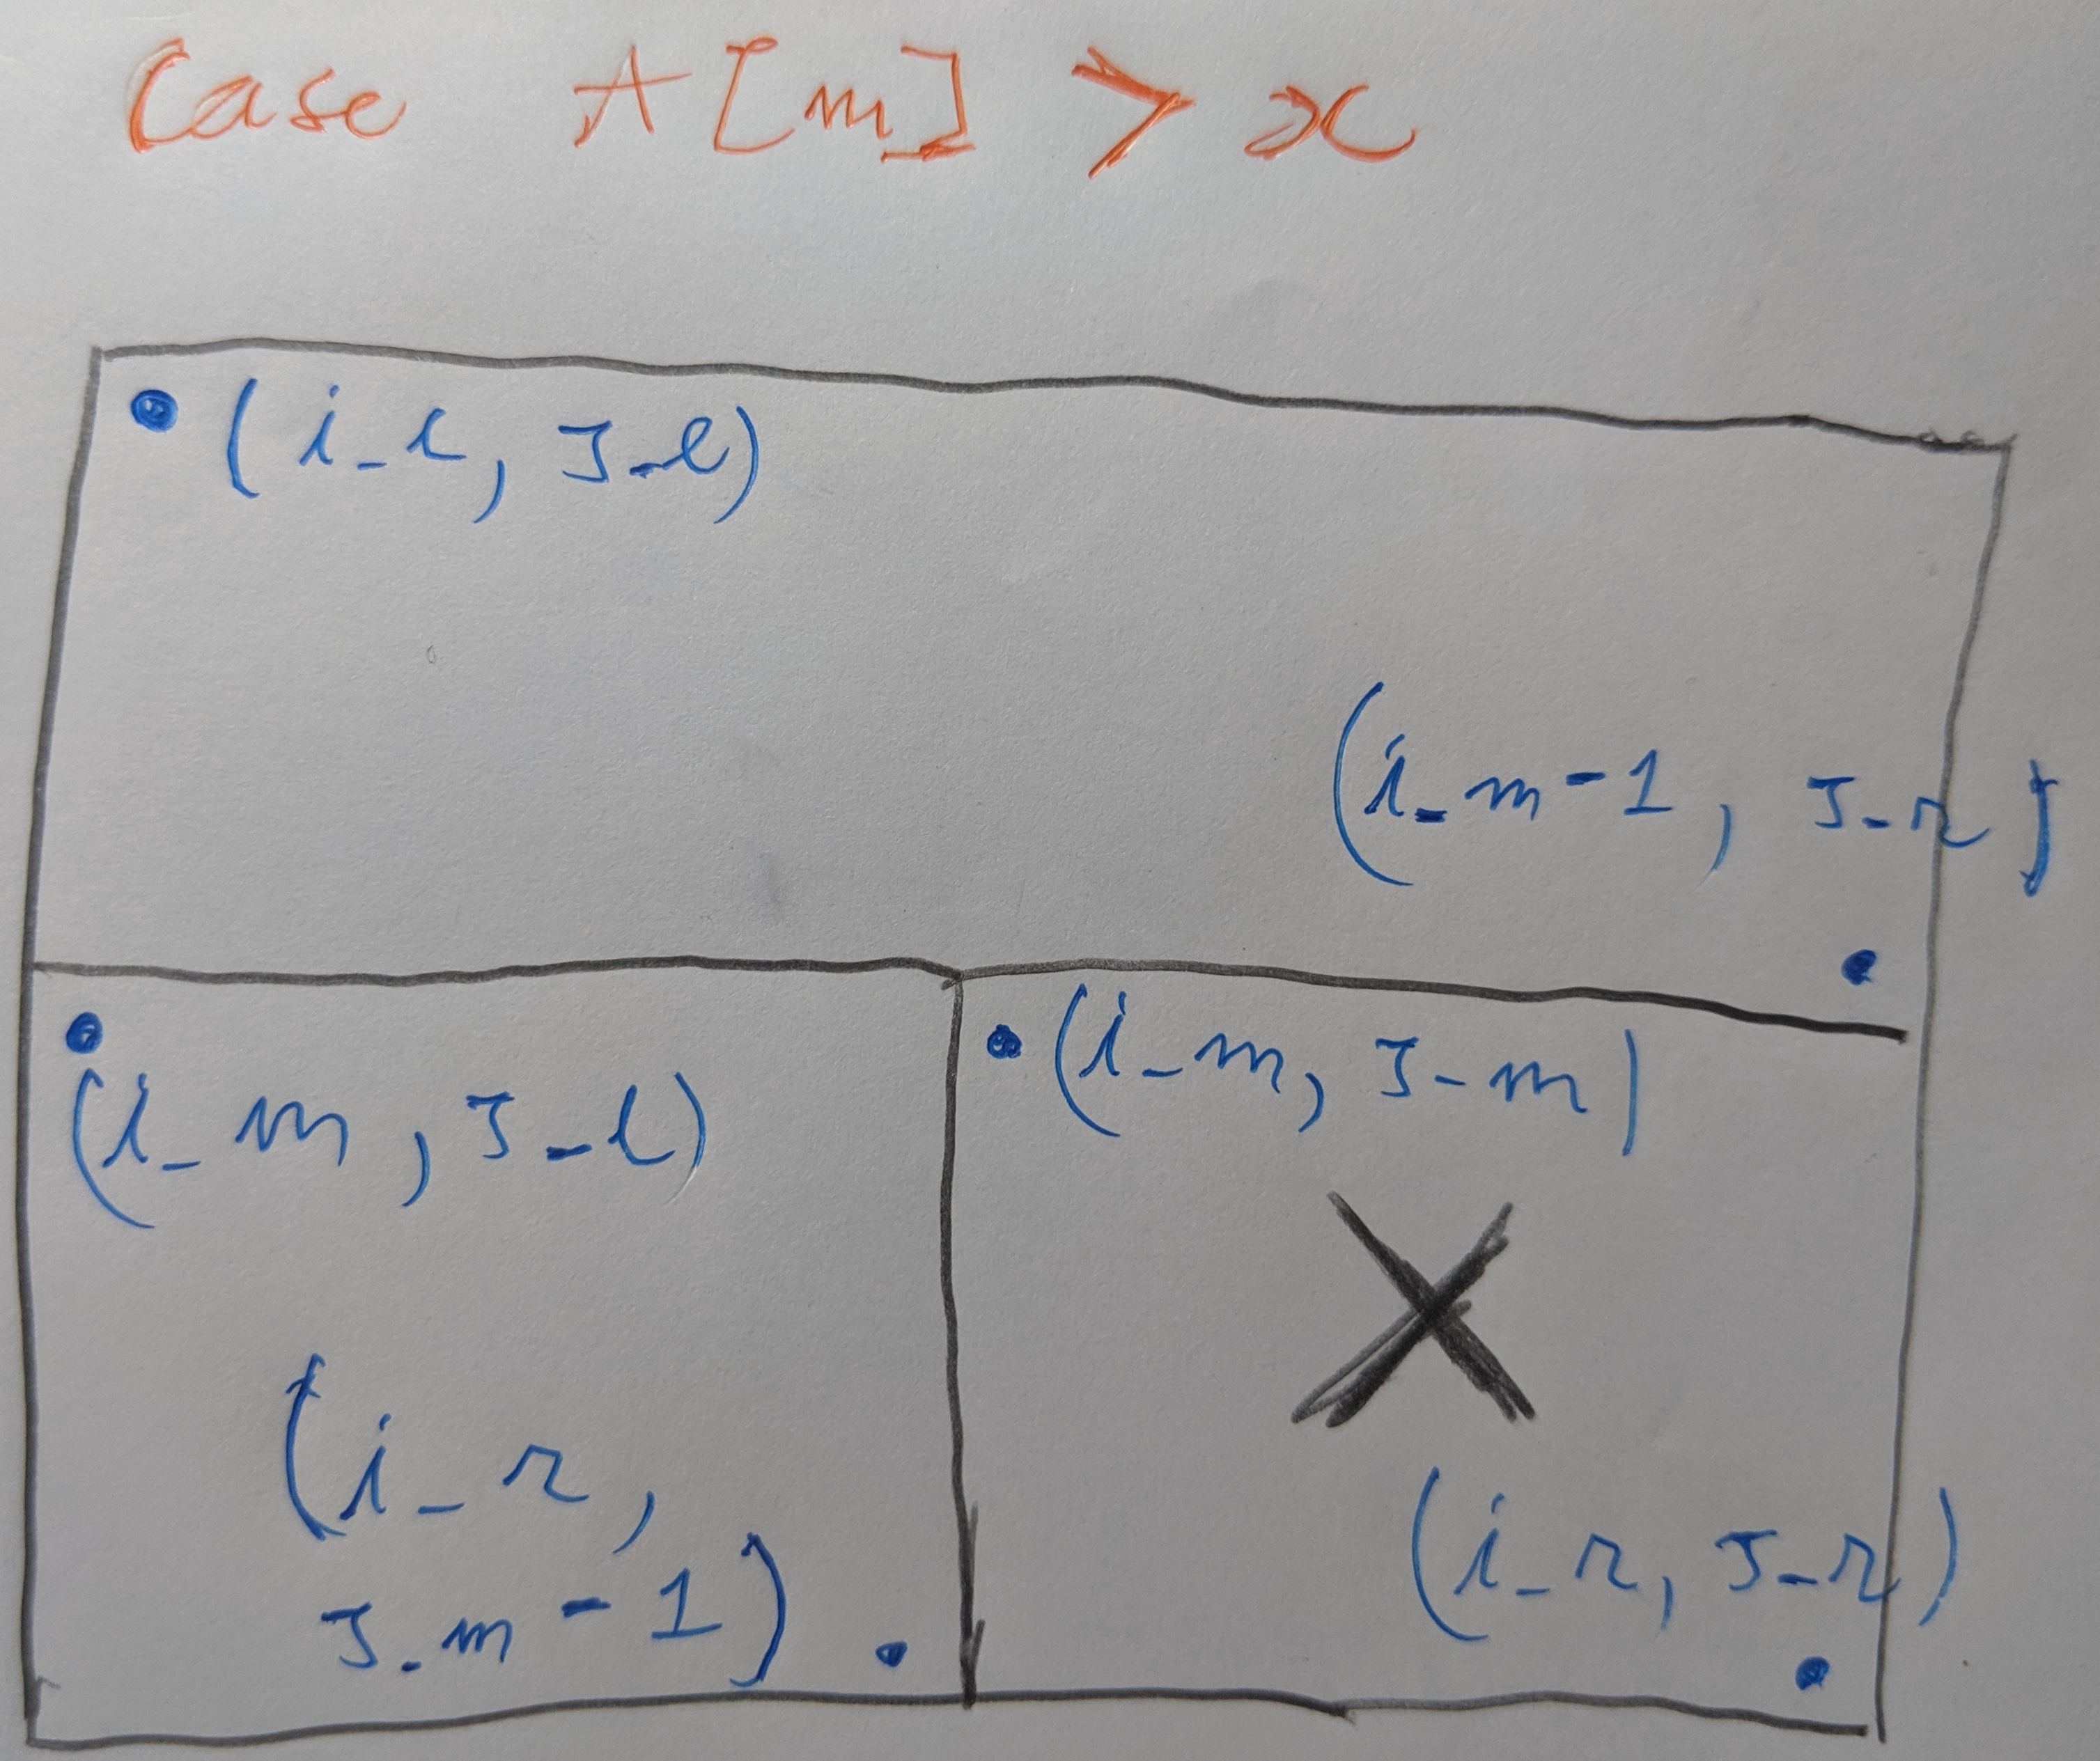 Case A[m] > x
(i_l, J_l)
(i_m-1, J_r)
(i_m, J_l)
(i_m, J_m)
(i_r,
J_m-1)
(i_r, J_r)